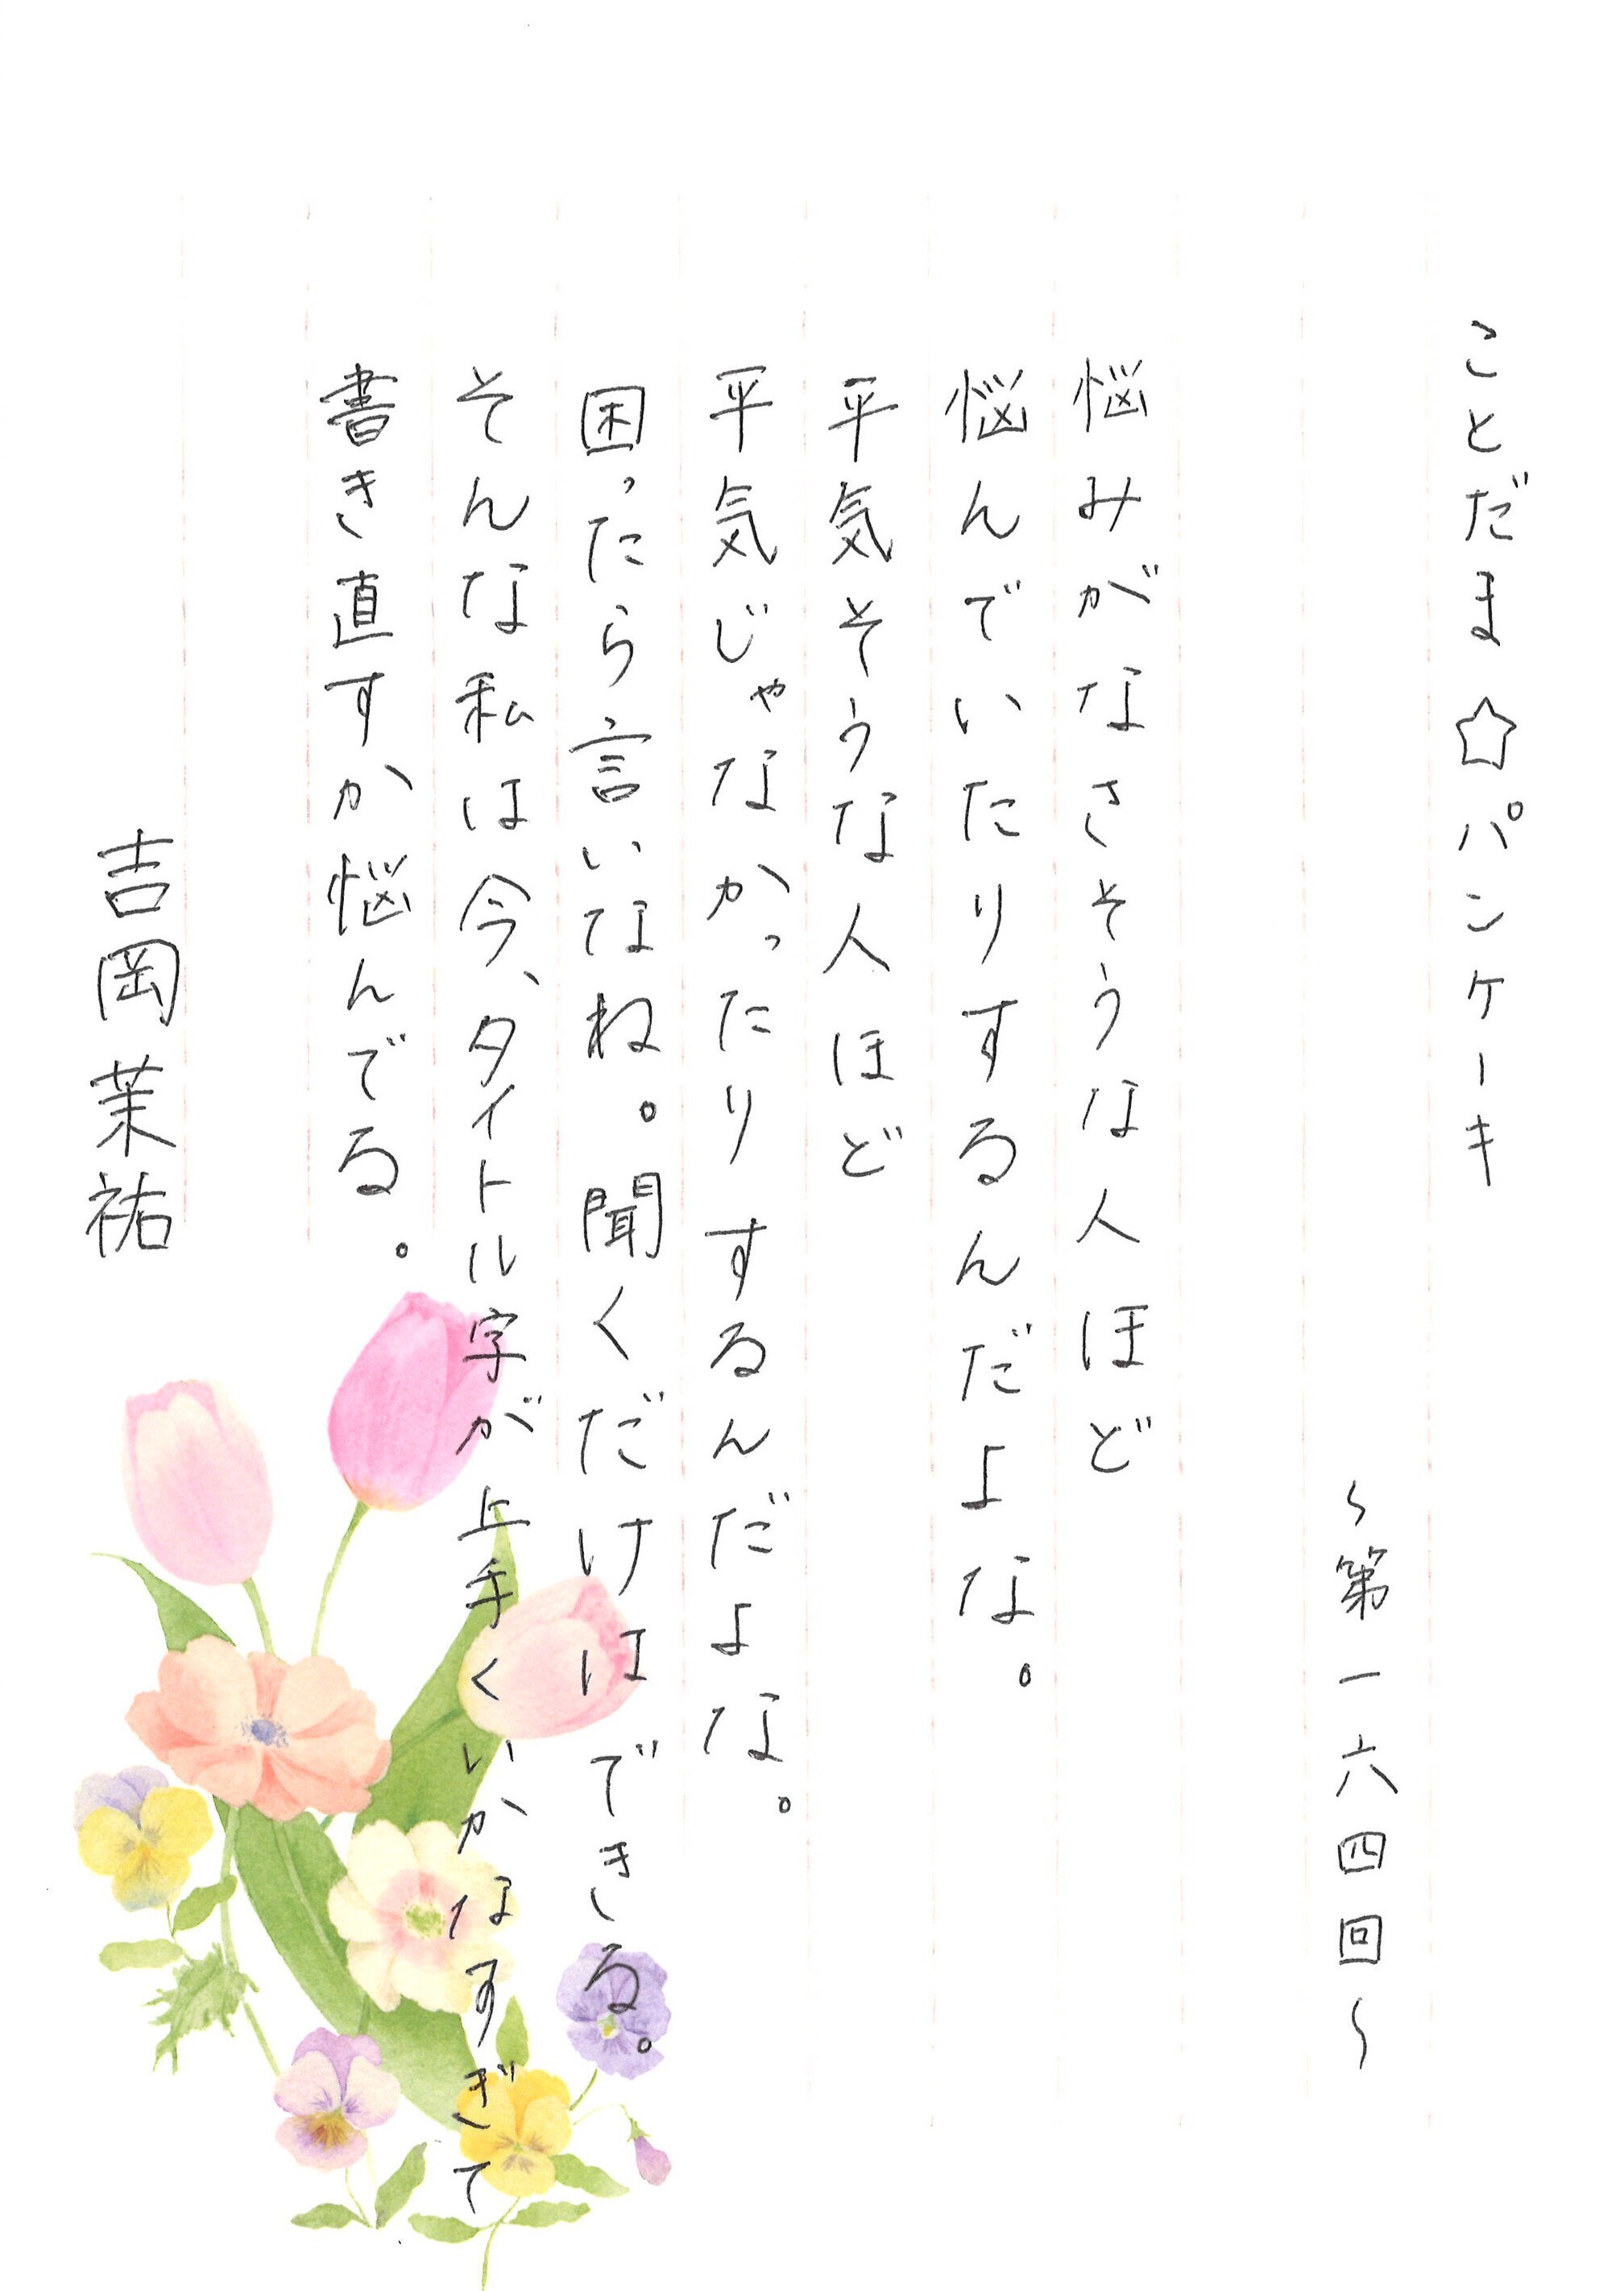 ことだま☆パンケーキ
〜第一六四回〜
悩みがなさそうな人ほど
悩んでいたりするんだよな。
平気そうな人ほど
平気じゃなかったりするんだよな。
困ったら言いなね。聞くだけはできる。
そんな私は今、タイトル字が上手くいかなすぎて
書き直すか悩んでる。
吉岡茉祐